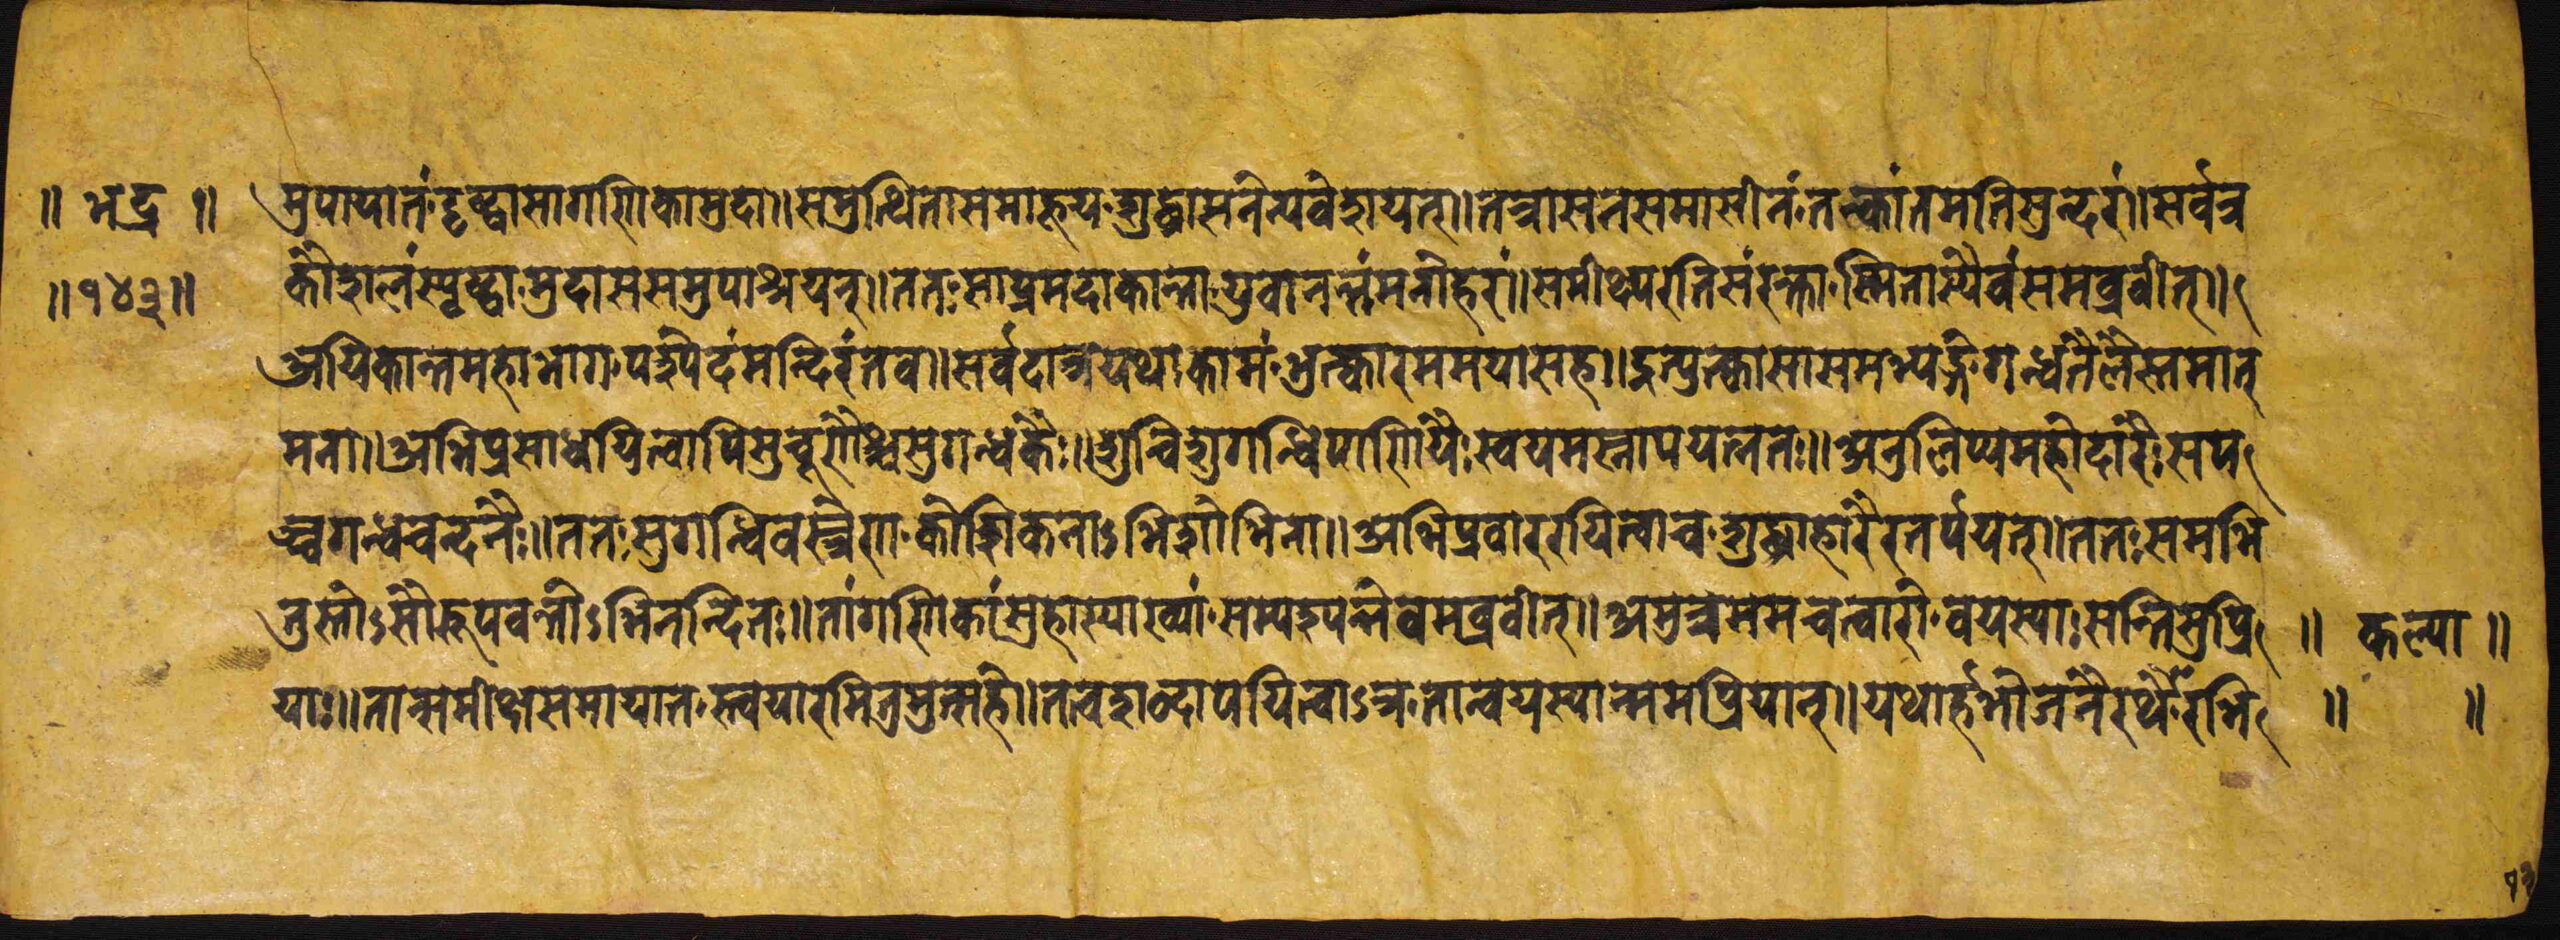 ॥ भद्र ॥
मुपायातं दृष्ट्वा सा गणिका मुदा॥ समुत्थिता समाहूय शुद्धासने न्यवेशयत्॥ तत्रासनसमासीनं तत्कांतमतिसुन्दरं॥ सर्वत्र
॥१४३॥
कौशलं स्पृष्ट्वा मुदा स समुपाश्रयत्॥ ततः सा प्रमदा कान्ता युवानन्तं मनोहरं॥ समीक्ष्य रतिसंरक्ता स्मितास्यैवं समब्रवीत्॥
अयि कान्त महाभाग पश्येदं मन्दिरं तव॥ सर्वदात्र यथाकामं भुक्त्वा रम मया सह॥ इत्युक्त्वा सा समभ्यङ्गे गन्धतैलैस्तमात्
मना॥ अभिप्रसाधयित्वापि सुचूर्णैश्च सुगन्धकैः॥ शुचिशुगन्धिपाणियैः स्वयमस्नापयत्ततः॥ अनुलिप्य महोदारैः सप
च्चगन्धचन्दनैः॥ ततः सुगन्धिवस्त्रेण कौशिकेनाऽभिशोभिना॥ अभिप्रवाररयित्वा च शुद्धाहारैरतर्पयत्॥ ततः समभि
तुस्तोऽसौ रूपवन्तोऽभिनन्दितः॥ तां गणिकां सुहास्याख्यां सम्पश्यन्नेवमब्रवीत्॥ अमुत्र मम चत्वारो वयस्याः सन्ति सुप्रि
॥ कल्या ॥
याः॥ तान्समीक्ष समायात स्त्वया रमितुमुत्सहे॥ तच्च शब्दापयित्वाऽत्र तान्वयस्यान्मम प्रियान्॥ यथार्हभोजनैरर्थैरभि
॥ ॥